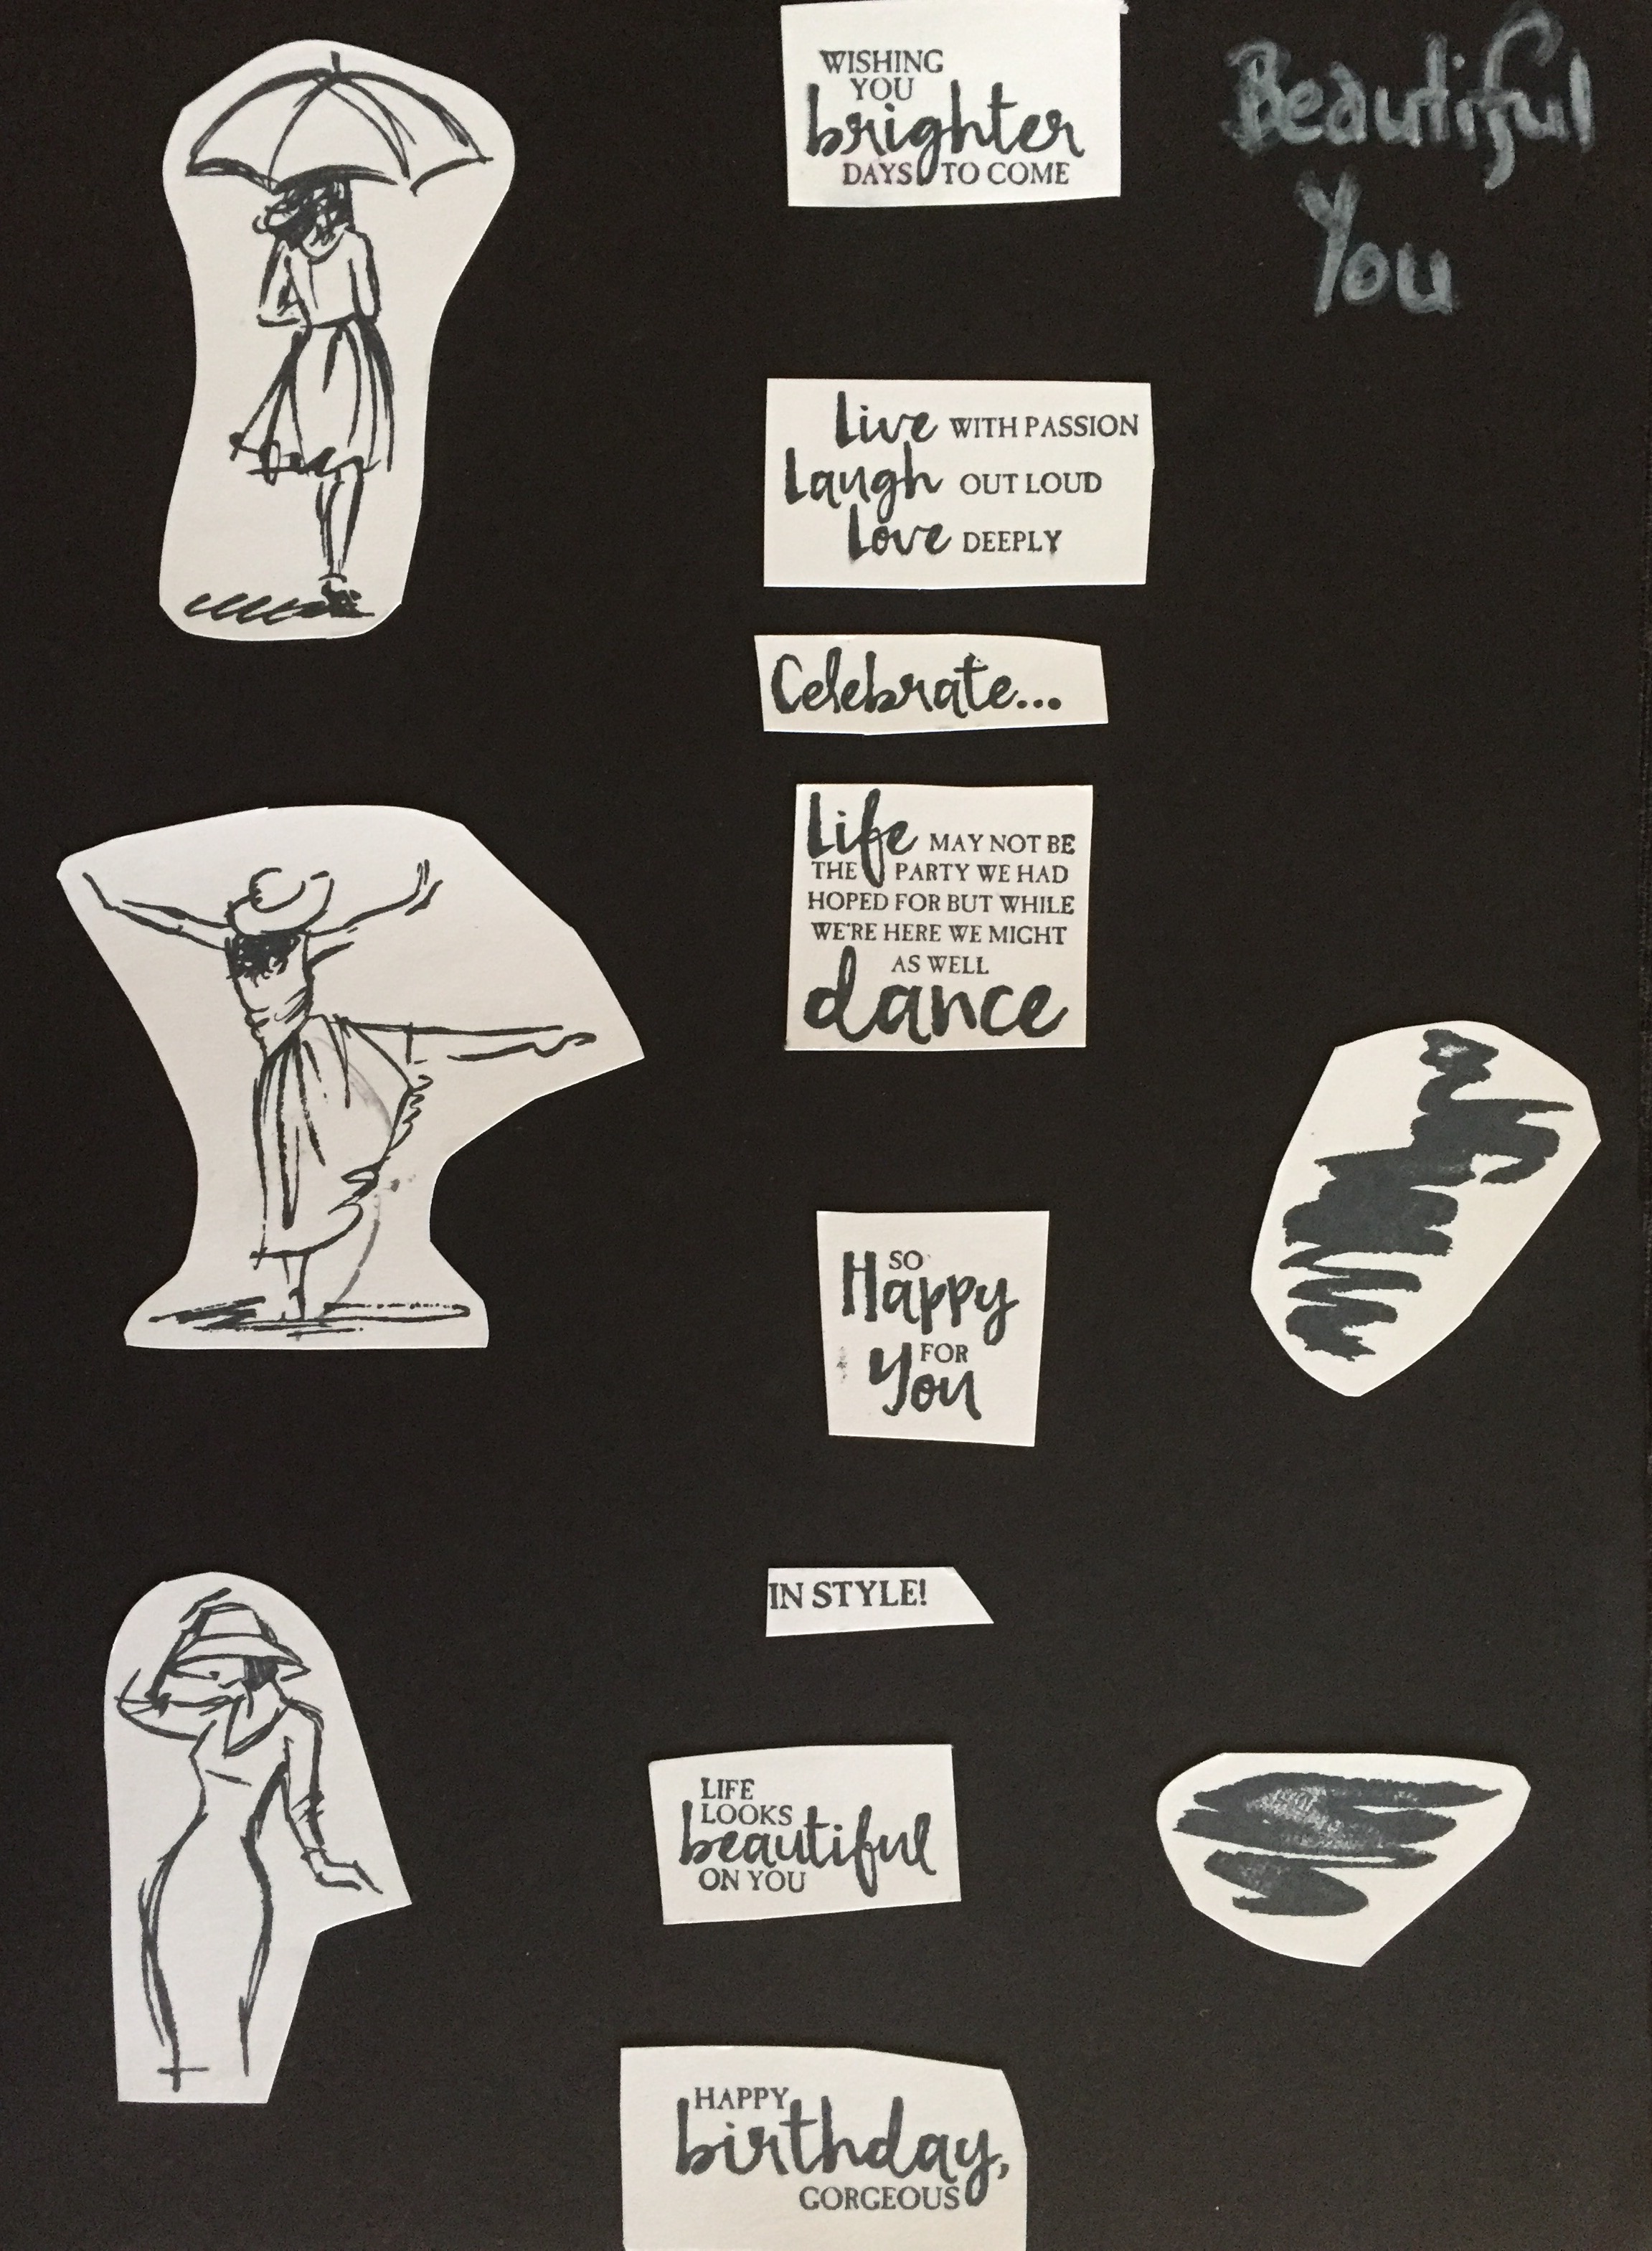 WISHING
YOU
brighter
DAYS TO COME
Beautiful
You
Live WITH PASSION
Laugh OUT LOUD
Love DEEPLY
Celebrate...
Life MAY NOT BE
THE PARTY WE HAD
HOPED FOR BUT WHILE
WE'RE HERE WE MIGHT
AS WELL
dance
SO
Happy
FOR
You
IN STYLE!
LIFE
LOOKS
beautiful
ON YOU
HAPPY
birthday,
GORGEOUS